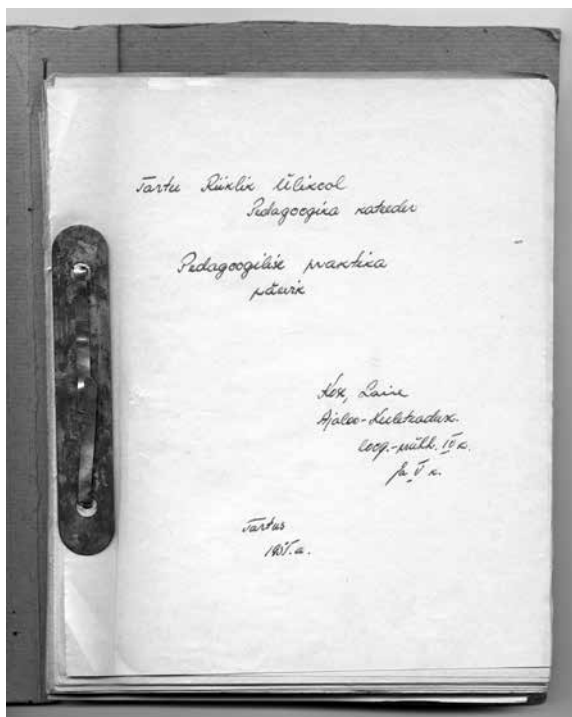 Tartu Riiklik Ülikool
Pedagoogika kateeder
Pedagoogilise praktika
päevik
Laine
Ajaloo-Keeleteadusk.
loog.-psühh. IV k.
ja V k.
Tartus
195 .a.